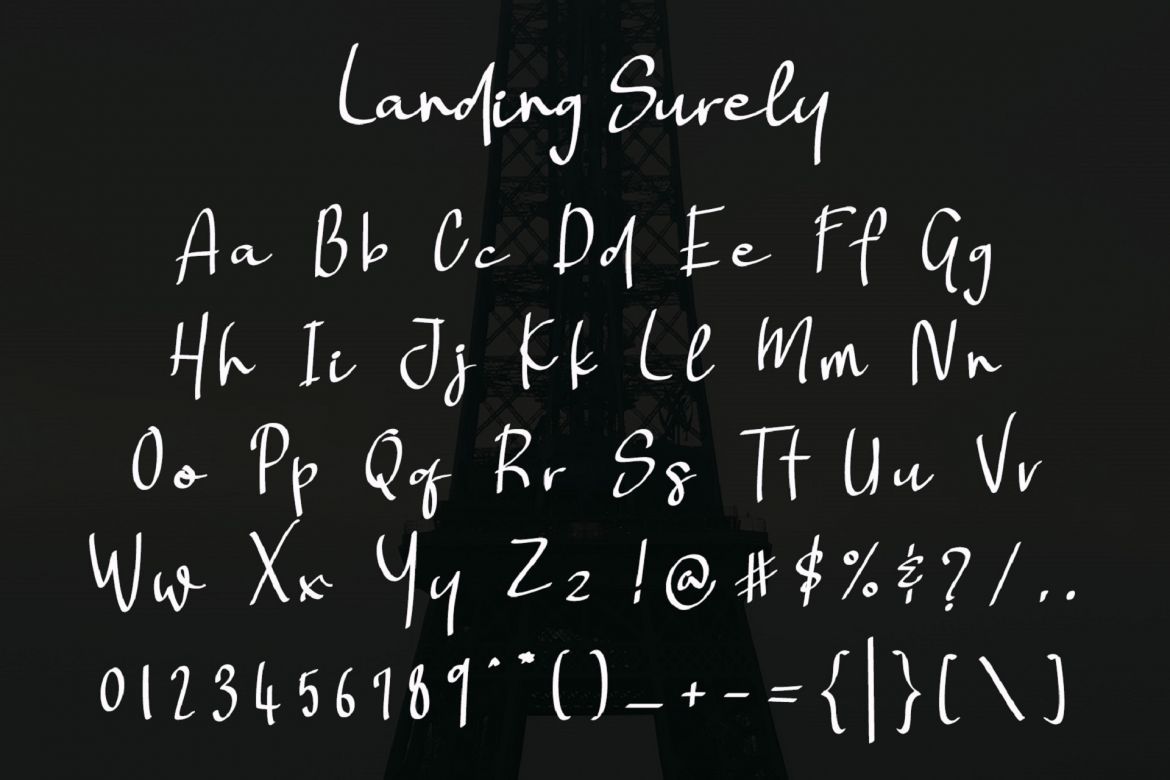 Landing Surely
Aa Bb Cc Dd Ee Ff Gg
Hh Ii Jj Kk Ll Mm Nn
Oo Pp Qq Rr Ss Tt Uu Vv
Ww Xx Yy Zz ! @ # $ % & ? / . .
0 1 2 3 4 5 6 7 8 9 ^ * ( ) _ + - = { | } [ \ ]